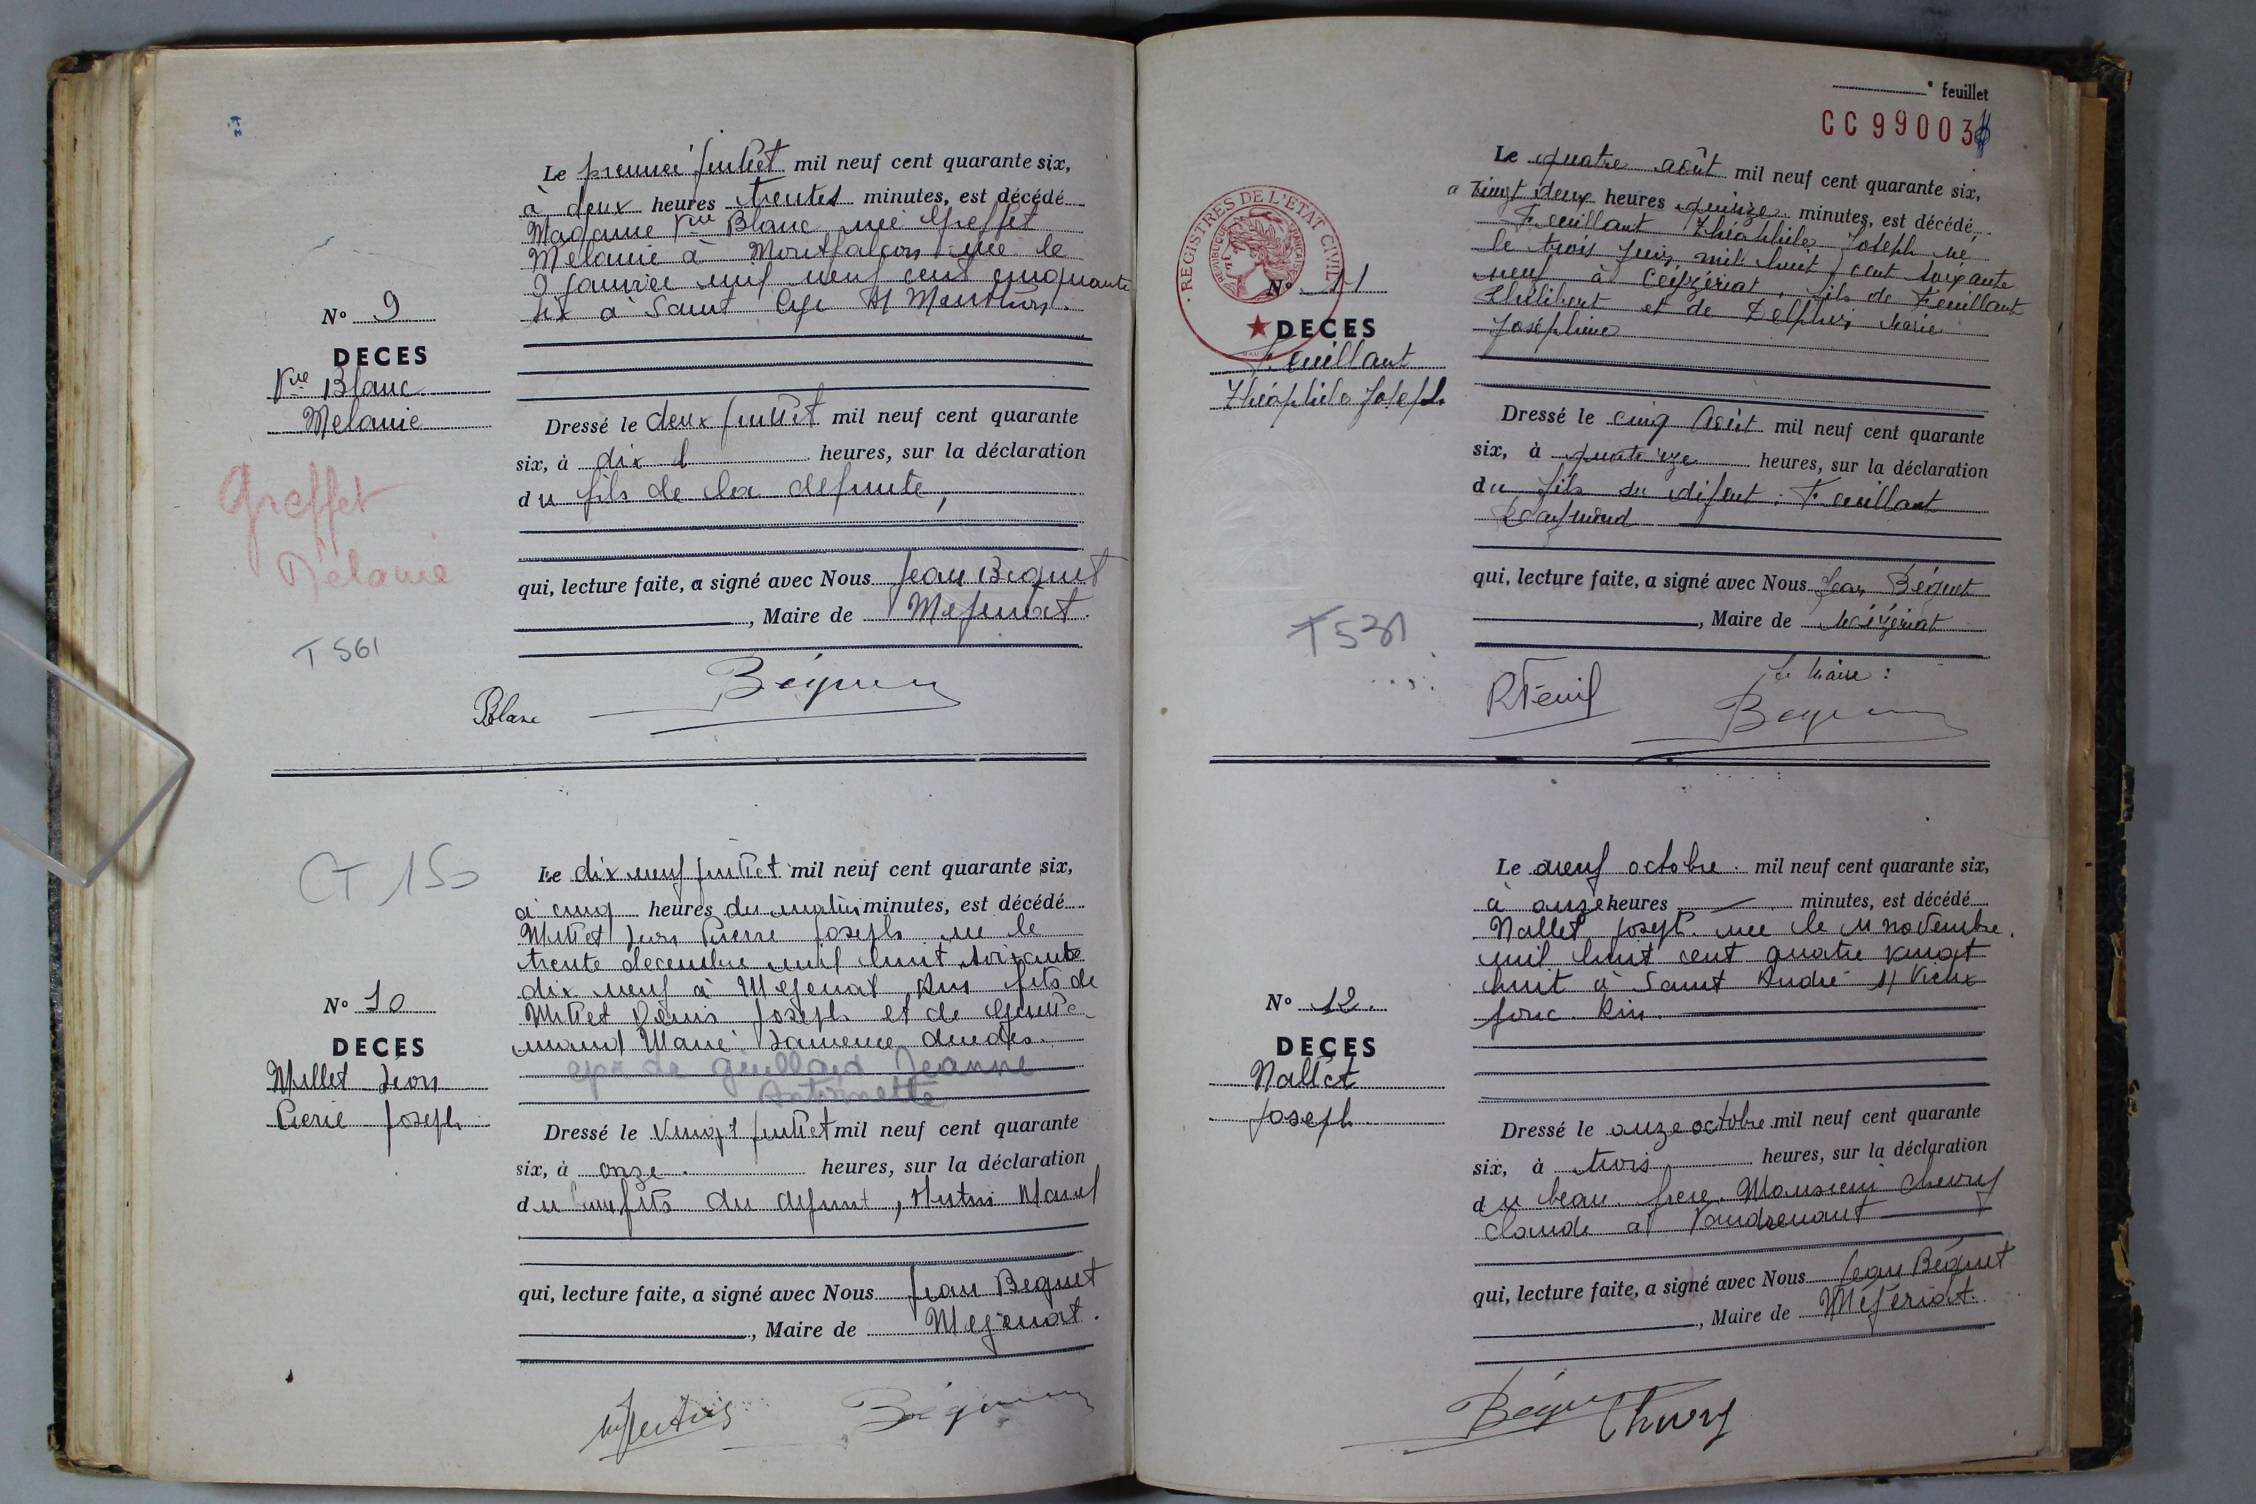 Le premier juillet mil neuf cent quarante six,
à deux heures trentes minutes, est décédé
Madame Vve Blanc née Greffet
Melanie à Montfalcon née le
9 janvier neuf cent cinquante
six à Saint Cyr s/ Menthon.
N° 9
DECES
Vve Blanc
Melanie
Greffet
Mélanie
T 561
Dressé le deux juillet mil neuf cent quarante
six, à dix heures, sur la déclaration
du fils de la defunte,
qui, lecture faite, a signé avec Nous Jean Beguet
, Maire de Mezeriat.
Blanc
CT 150
Le dix neuf juillet mil neuf cent quarante six,
à cinq heures du matin minutes, est décédé
Millet Jean Pierre Joseph né le
trente decembre mil huit soixante
dix neuf à Mezeriat Ain fils de
Millet Denis Joseph et de
Marie
N° 10
DECES
Millet
Pierre Joseph
de Guillard Jeanne
Antoinette
Dressé le vingt juillet mil neuf cent quarante
six, à onze heures, sur la déclaration
du fils du defunt, Marcel
qui, lecture faite, a signé avec Nous Jean Beguet
, Maire de Mezeriat.
° feuillet
CC 99003
REGISTRES DE L'ETAT CIVIL
REPUBLIQUE FRANÇAISE
Le quatre août mil neuf cent quarante six,
à vingt deux heures quinze minutes, est décédé
Feuillant Théophile Joseph né
le trois juin mil huit cent soixante
neuf à Ceyzériat, fils de Feuillant
Philibert et de Delphin Marie
Joséphine
N° 11
DECES
Feuillant
Théophile Joseph
T 531
Dressé le cinq Août mil neuf cent quarante
six, à quatorze heures, sur la déclaration
du fils du défunt. Feuillant
Raymond
qui, lecture faite, a signé avec Nous Jean Béguet
, Maire de Mézériat
Le Maire :
Le neuf octobre mil neuf cent quarante six,
à onze heures minutes, est décédé
Nallet Joseph né le 11 novembre
mil huit cent quatre vingt
huit à Saint André s/ Vieux
Jonc. Ain.
N° 12.
DECES
Nallet
Joseph
Dressé le onze octobre mil neuf cent quarante
six, à trois heures, sur la déclaration
du beau frere. Monsieur Chevry
Claude à Vandrenant
qui, lecture faite, a signé avec Nous Jean Béguet
, Maire de Mézériat.
Chevry